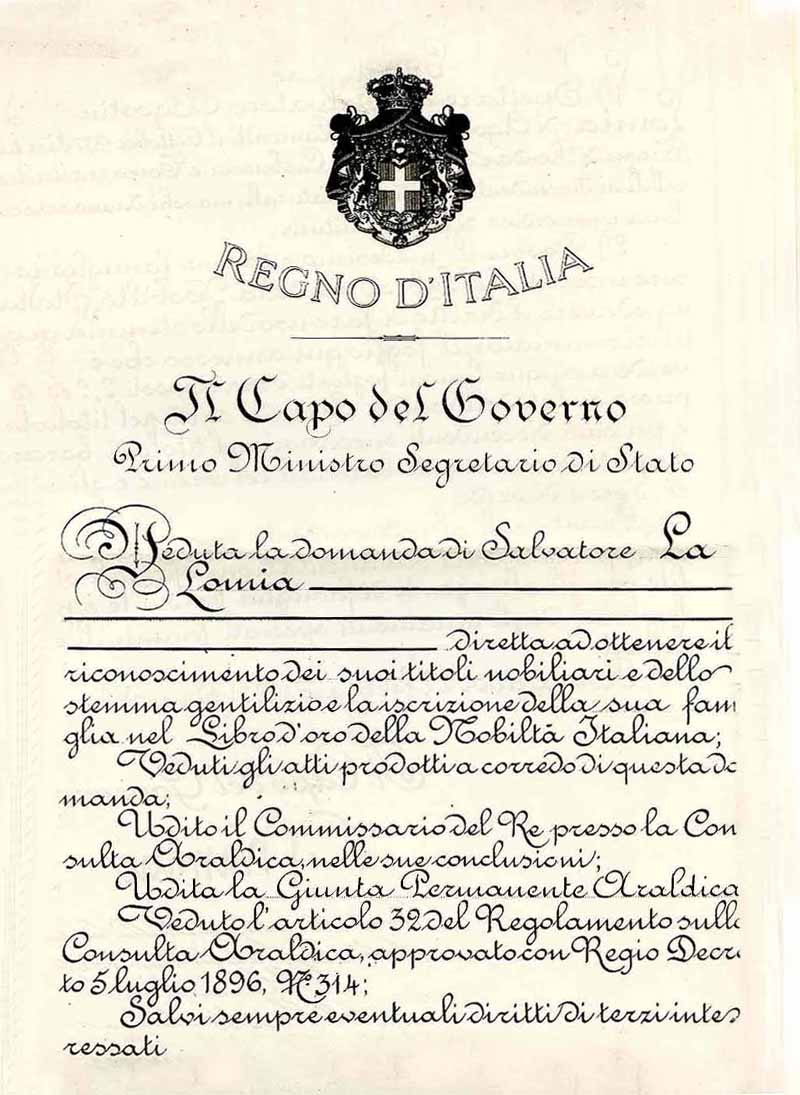 REGNO D'ITALIA
Il Capo del Governo
Primo Ministro Segretario di Stato
Veduta la domanda di Salvatore La
Lomia
diretta ad ottenere il
riconoscimento dei suoi titoli nobiliari e dello
stemma gentilizio e la iscrizione della sua fami
glia nel Libro d'oro della Nobiltà Italiana;
Veduti gli atti prodotti a corredo di questa do
manda;
Udito il Commissario del Re presso la Con
sulta Araldica, nelle sue conclusioni;
Udita la Giunta Permanente Araldica
Veduto l'articolo 32 del Regolamento sulla
Consulta Araldica, approvato con Regio Decre
to 5 luglio 1896, N.° 314;
Salvi sempre eventuali diritti di terzi inte
ressati